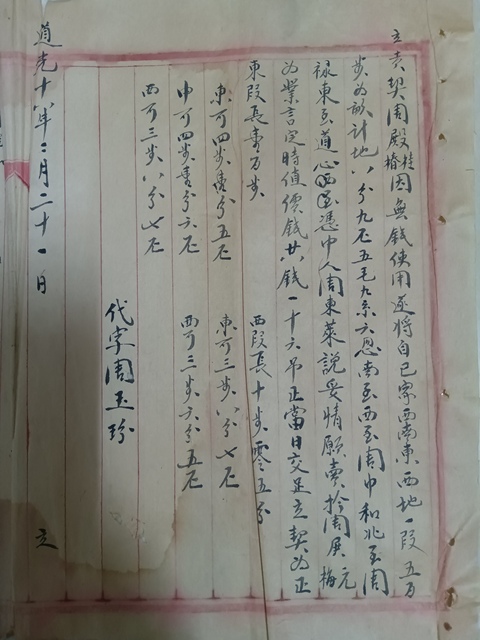 立卖契周殿桂椿因無錢使用遂将自己家西南東西地一段五百
步为該計地八分九厘五毛九系六忽南至西至周中和北至周
禄東至道心西至憑中人周東萊說妥情願卖於周展元梅
为業言定時值價錢廿八錢一十六吊正當日交足立契为正
東段長壹百步 西段長十步零五分
東可四步壹分五厘 東可三步八分七厘
中可四步壹分六厘 西可三步六分五厘
西可三步八分七厘
代字周玉珍
道光十八年二月二十一日 立